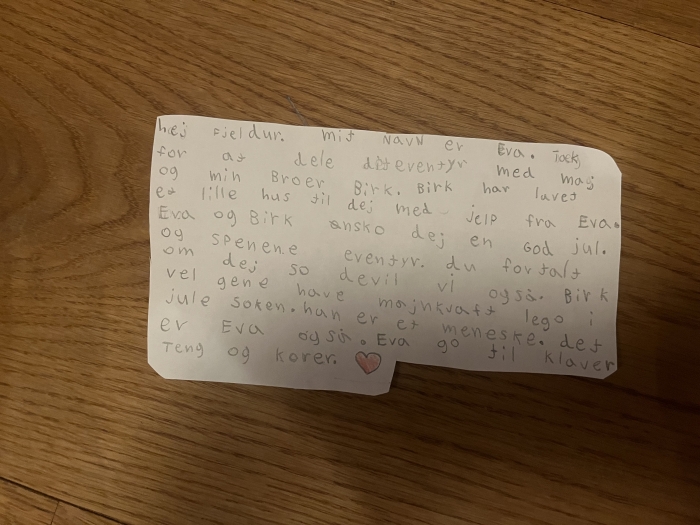 hej Fjeldur. mit Navn er Eva. Tack
for at dele diteventyr med maj
og min Broer Birk. Birk har lavet
et lille hus til dej med jelp fra Eva.
Eva og Birk ønsko dej en God jul.
og spenene eventyr. du fortalt
om dej so devil vi også. Birk
vel gene have majnkraft lego i
jule soken. han er et meneske. det
er Eva også. Eva go til klaver
Teng og korer.